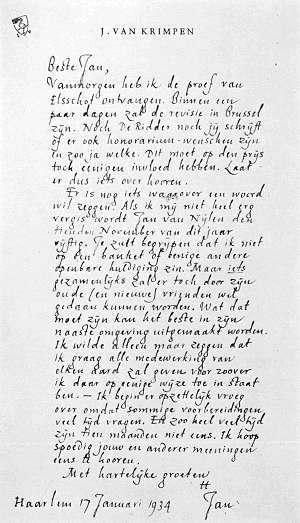 J. VAN KRIMPEN
Beste Jan,
Vanmorgen heb ik de proef van
Elsschot ontvangen. Binnen een
paar dagen zal de revisie in Brussel
zijn. Noch De Ridder noch jij schrijft
of er ook honorarium-wenschen zijn
en zoo ja welke. Dit moet op den prijs
toch eenigen invloed hebben. Laat
er dus iets over hooren.
Er is nog iets waarover ik een woord
wil zeggen. Als ik mij niet heel erg
vergis wordt Jan van Nijlen den
tienden November van dit jaar
vijftig. Je zult begrijpen dat ik niet
op een banket of eenige andere
openbare huldiging zin. Maar iets
gezamenlijks zal er toch door zijn
oude (en nieuwe) vrienden wel
gedaan kunnen worden. Wat dat
moet zijn kan het beste in zijn
naaste omgeving uitgemaakt worden.
Ik wilde alleen maar zeggen dat
ik graag alle medewerking van
elken aard zal geven voor zoover
ik daar op eenige wijze toe in staat
ben. — Ik begin er opzettelijk vroeg
over omdat sommige voorbereidingen
veel tijd vragen. En zoo heel veel tijd
zijn tien maanden niet eens. Ik hoop
spoedig jouw en anderer meeningen
eens te hooren.
Met hartelijke groeten
tt
Haarlem 17 Januari 1934 Jan.